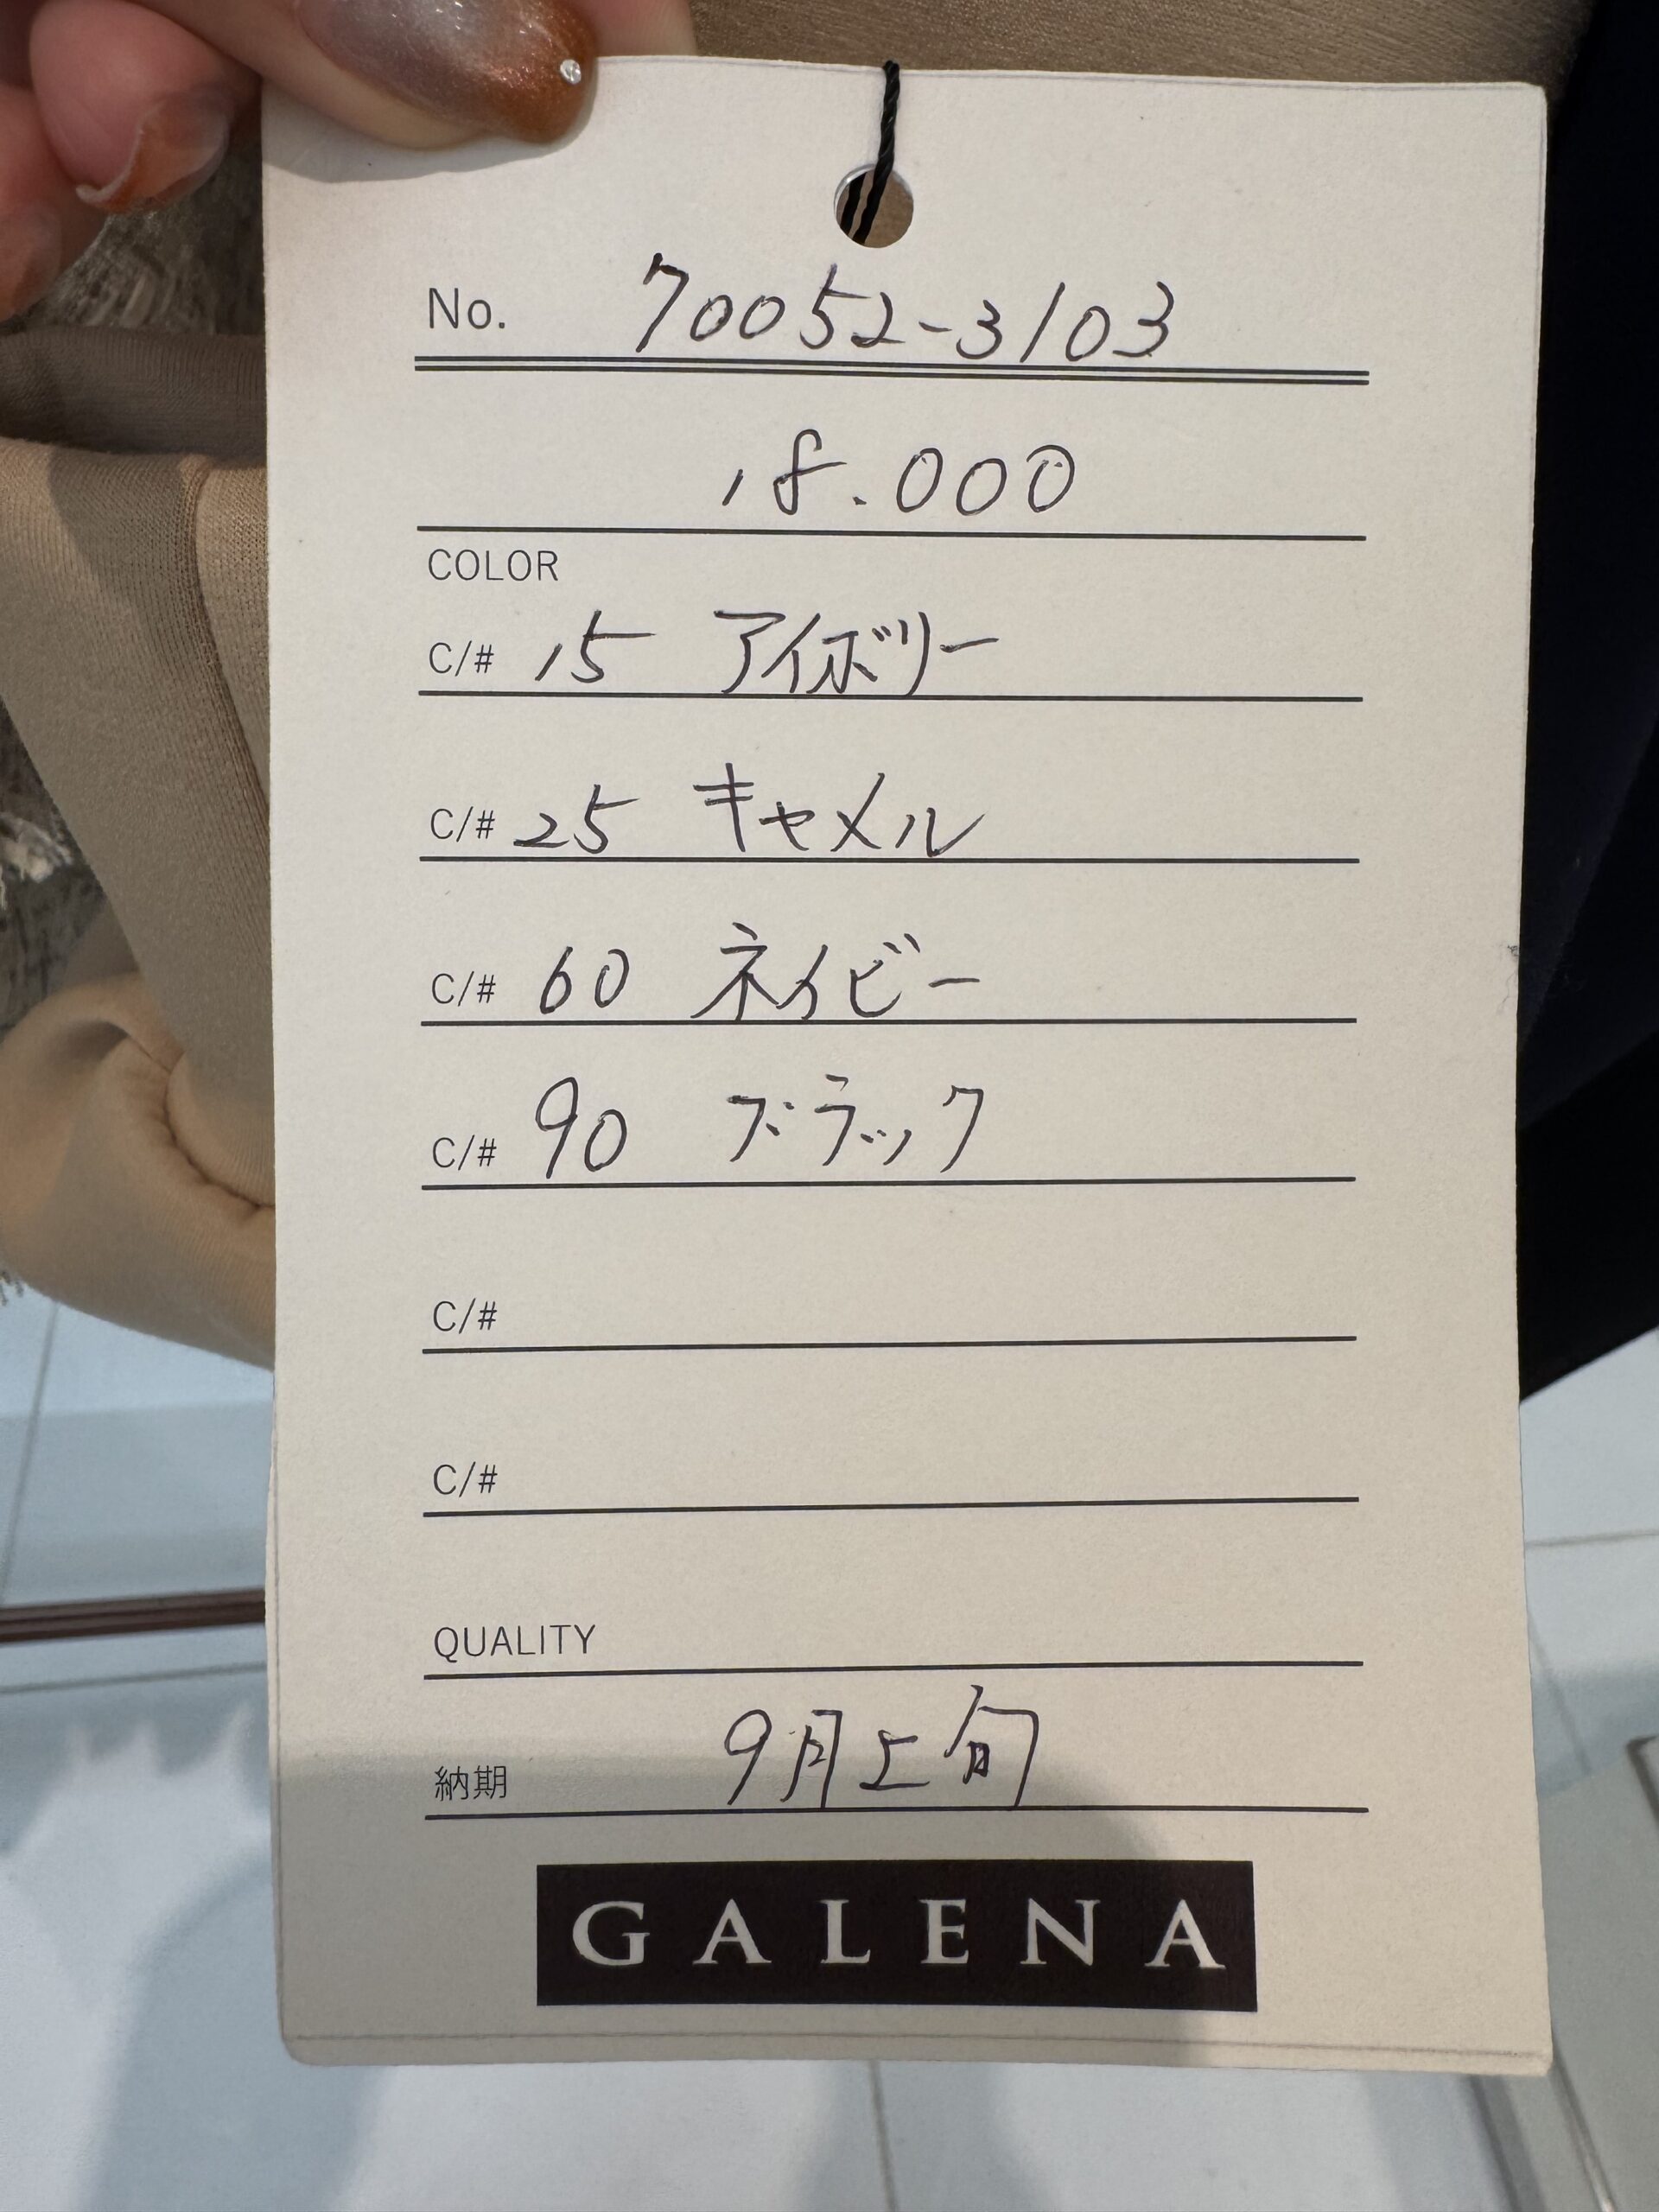 No. 70052-3103
18.000
COLOR
C/# 15 アイボリー
C/# 25 キャメル
C/# 60 ネイビー
C/# 90 ブラック
C/#
C/#
QUALITY
納期 9月上旬
GALENA